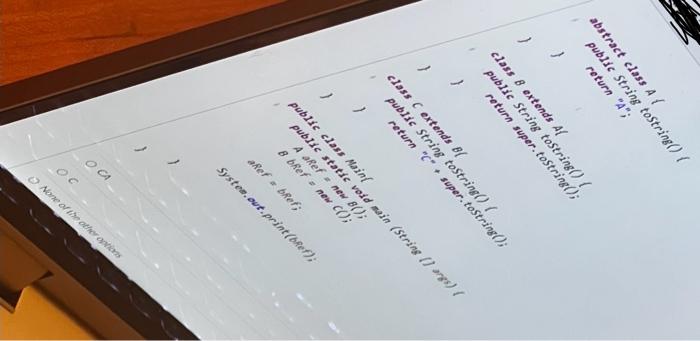 abstract class A {
public String toString() {
return "A";
}
}
class B extends A{
public String toString() {
return super.toString();
}
}
class C extends B{
public String toString() {
return "C" + super.toString();
}
}
public class Main{
public static void main (String [] args) {
A aRef = new B();
B bRef = new C();
aRef = bRef;
System.out.print(bRef);
}
}
CA
C
None of the other options